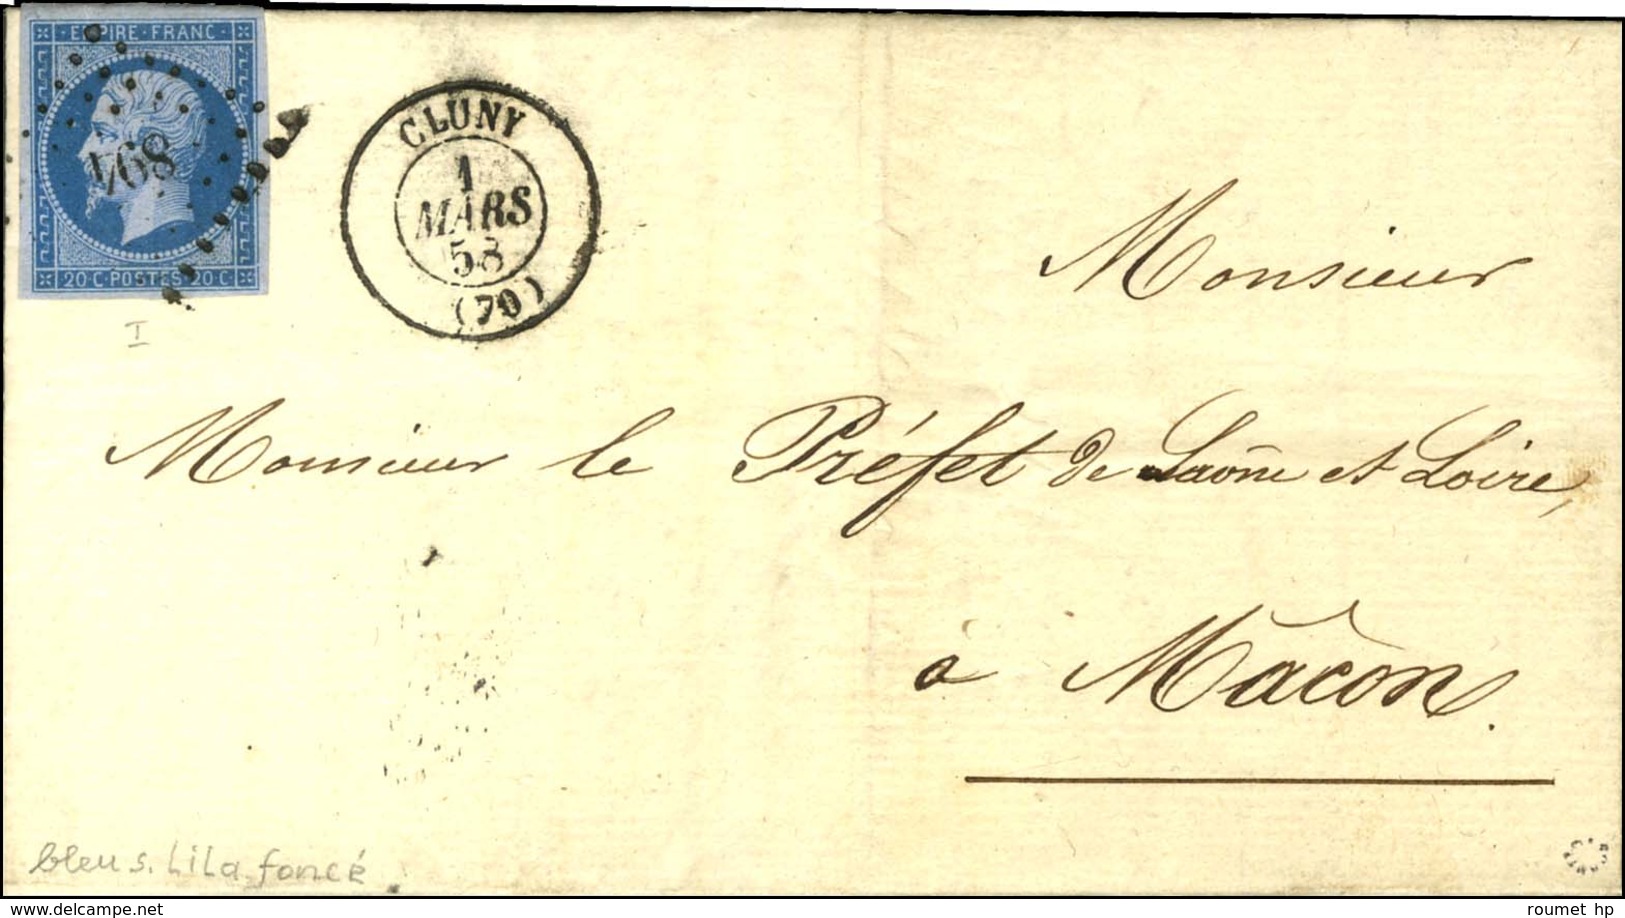 EMPIRE · FRANC ·
20 C · POSTES · 20 C
CLUNY
1
MARS
58
(70)
I
Monsieur
Monsieur le Préfet de Saône et Loire,
à Mâcon.
bleu s. lila foncé
www.delcampe.net
roumet hp